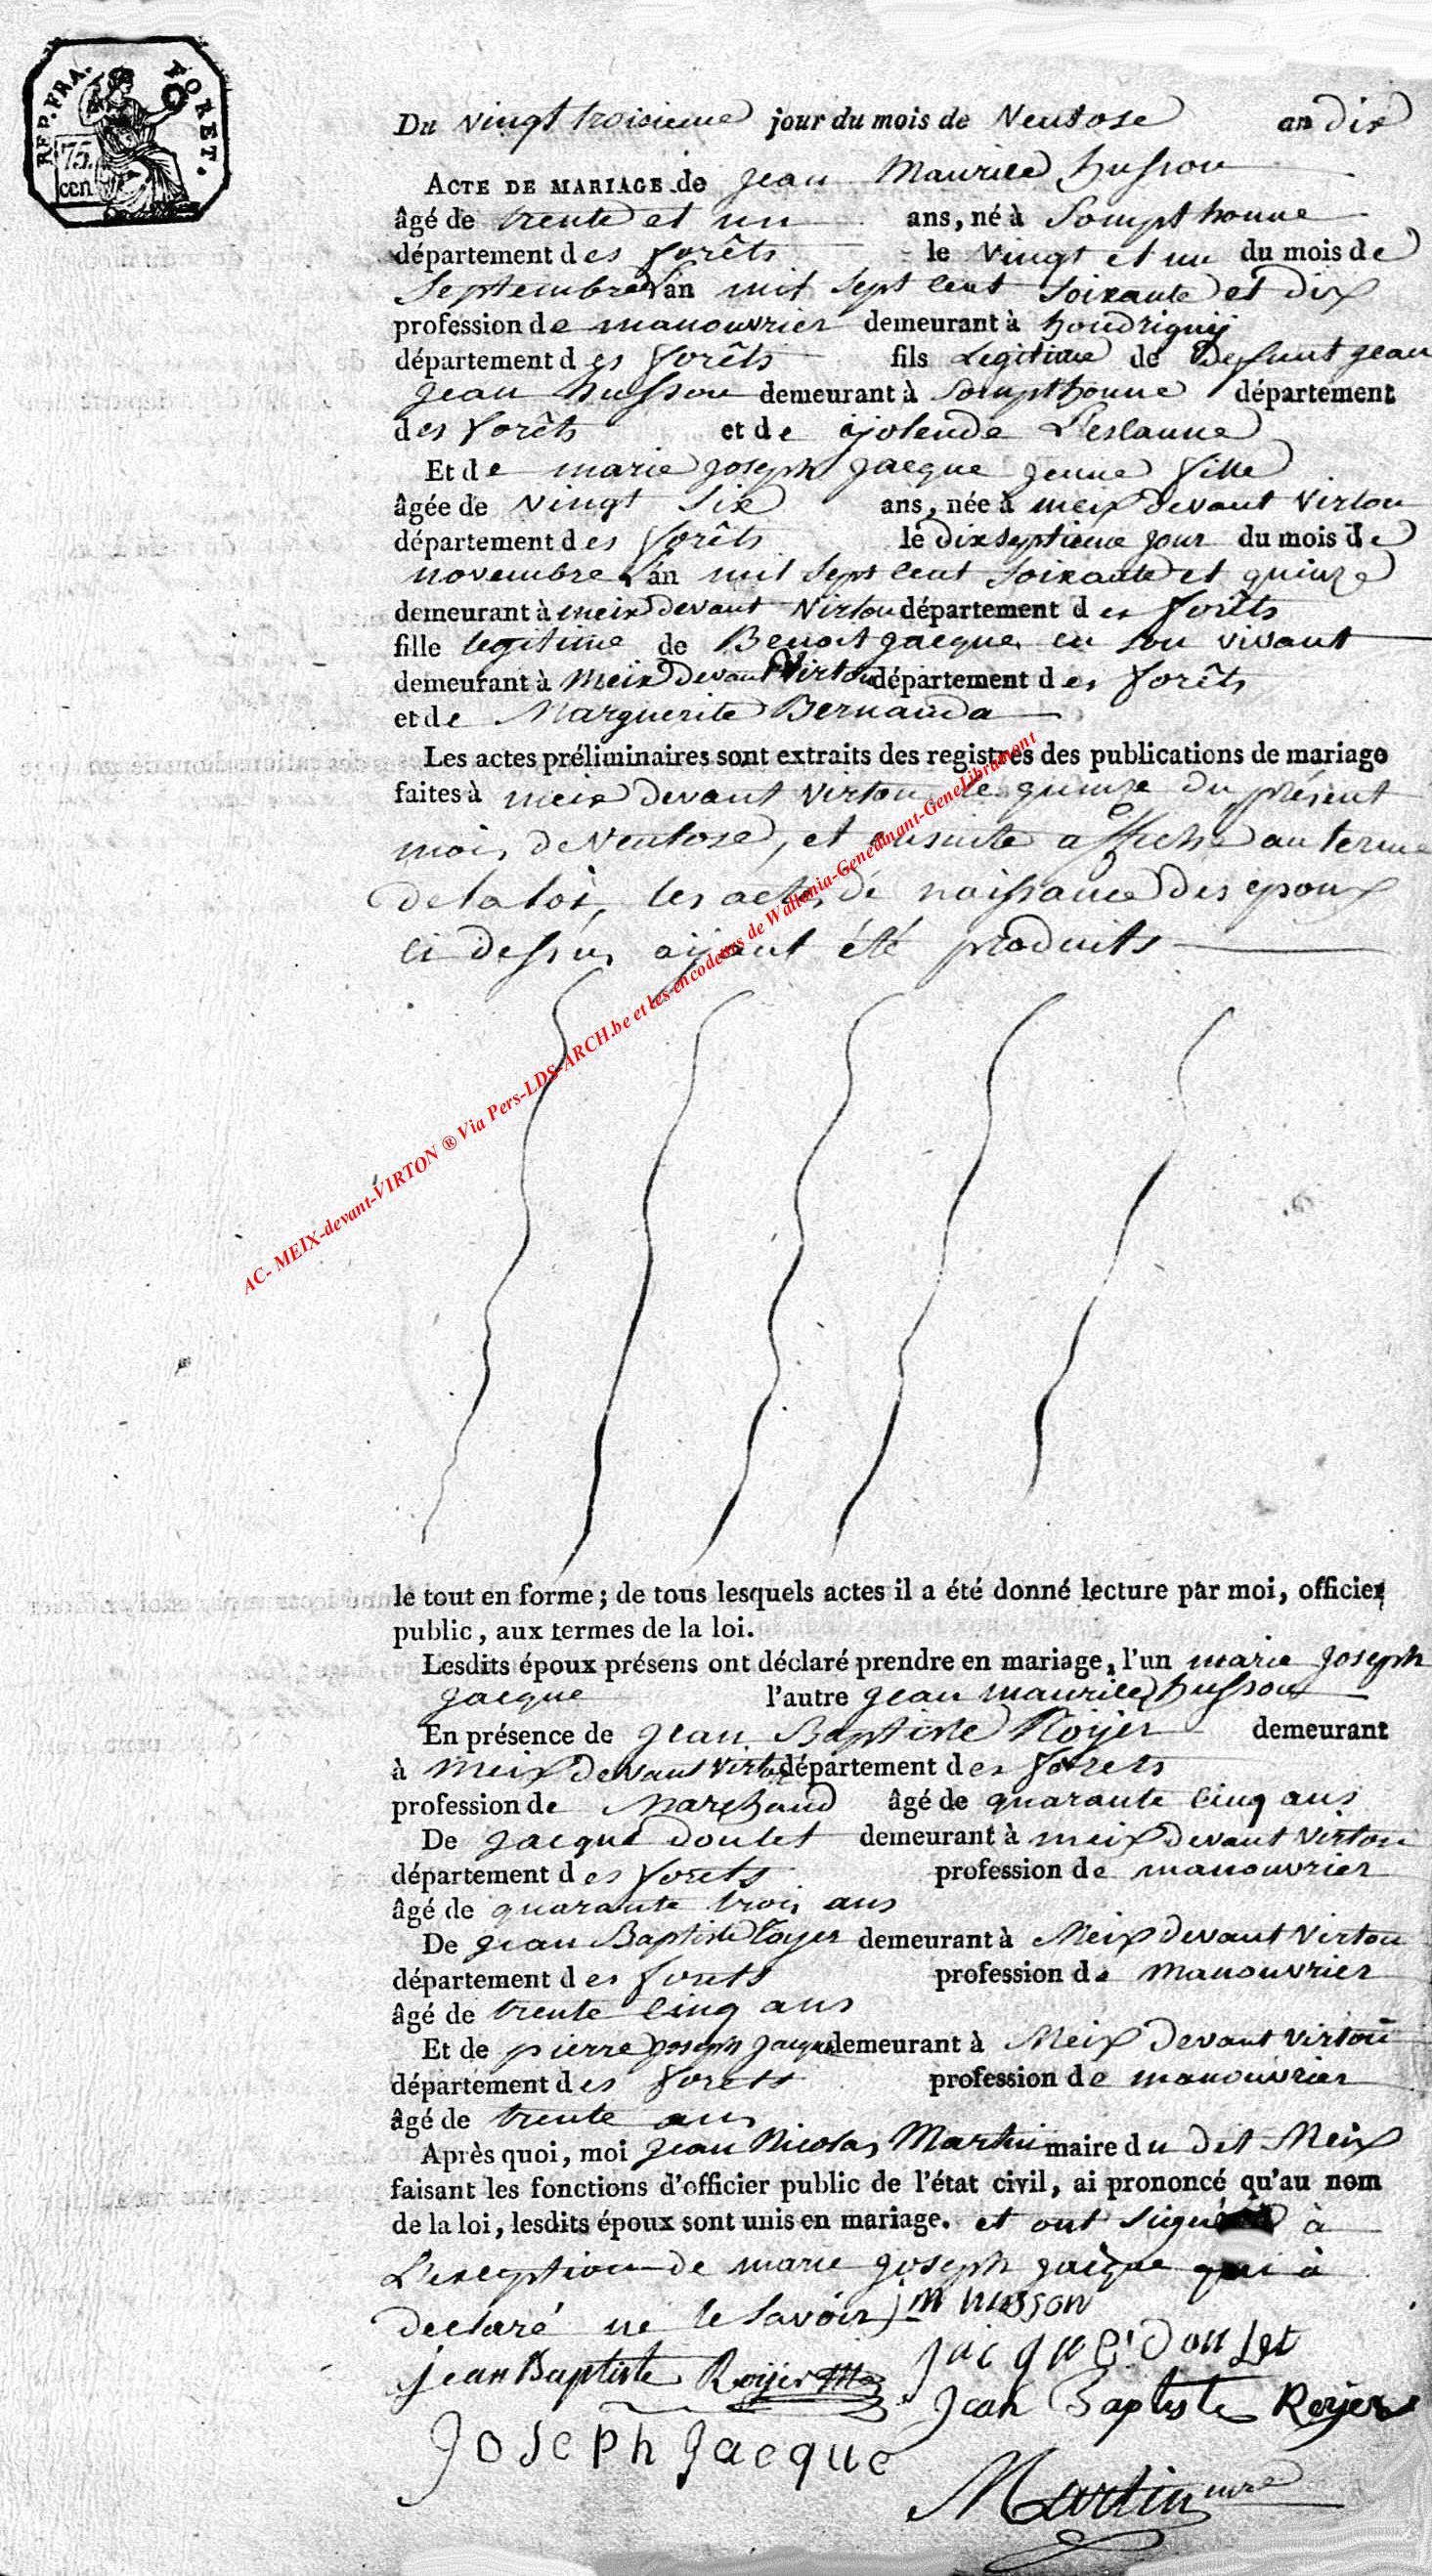 REP. FRA. FORET.
75.
cen
Du vingt troisieme jour du mois de Ventose an dix
ACTE DE MARIAGE de jean Maurice husson
âgé de trente et un ans, né à Sompthonne
département des forêts le vingt et un du mois de
Septembre l'an mil sept cent soixante et dix
profession de manouvrier demeurant à houdrigny
département des forêts fils Legitime de Defunt jean
jean husson demeurant à Sompthonne département
des forêts et de ijolende
Et de marie joseph jacque jeune fille
âgée de vingt six ans, née à meix devant virton
département des forêts le dix septieme jour du mois de
novembre l'an mil sept cent soixante et quinze
demeurant à meix devant Virton département des forêts
fille legitime de Benoit jacque en son vivant
demeurant à Meix devant Virton département des forêts
et de Marguerite Bernarda
Les actes préliminaires sont extraits des registres des publications de mariage
faites à meix devant virton le quinze du présent
mois de Ventose, et ensuite affiché au terme
de la loi, les actes de naissance des epoux
ci dessus ayant été produits
AC- MEIX-devant-VIRTON ® Via Pers-LDS-ARCH.be et les encodeurs de Wallonia-Genedinant-GeneLibramont
le tout en forme ; de tous lesquels actes il a été donné lecture par moi, officier
public, aux termes de la loi.
Lesdits époux présens ont déclaré prendre en mariage, l'un marie joseph
jacque l'autre jean maurice husson
En présence de jean Baptiste Roijer demeurant
à Meix devant virton département des forets
profession de Marchand âgé de quarante cinq ans
De jacque doulet demeurant à meix devant virton
département des forets profession de manouvrier
âgé de quarante trois ans
De jean Baptiste demeurant à Meix devant virton
département des forets profession de manouvrier
âgé de trente cinq ans
Et de pierre joseph jacque demeurant à Meix devant virton
département des forets profession de manouvrier
âgé de trente ans
Après quoi, moi jean Nicolas Martin maire du dit Meix
faisant les fonctions d'officier public de l'état civil, ai prononcé qu'au nom
de la loi, lesdits époux sont unis en mariage. et ont signé à
L'exception de marie joseph jacque qui à
declaré ne le savoir j m husson
jacque doulet
jean Baptiste Roijer
Jean Baptiste Reyer
Joseph jacque
Martin mre